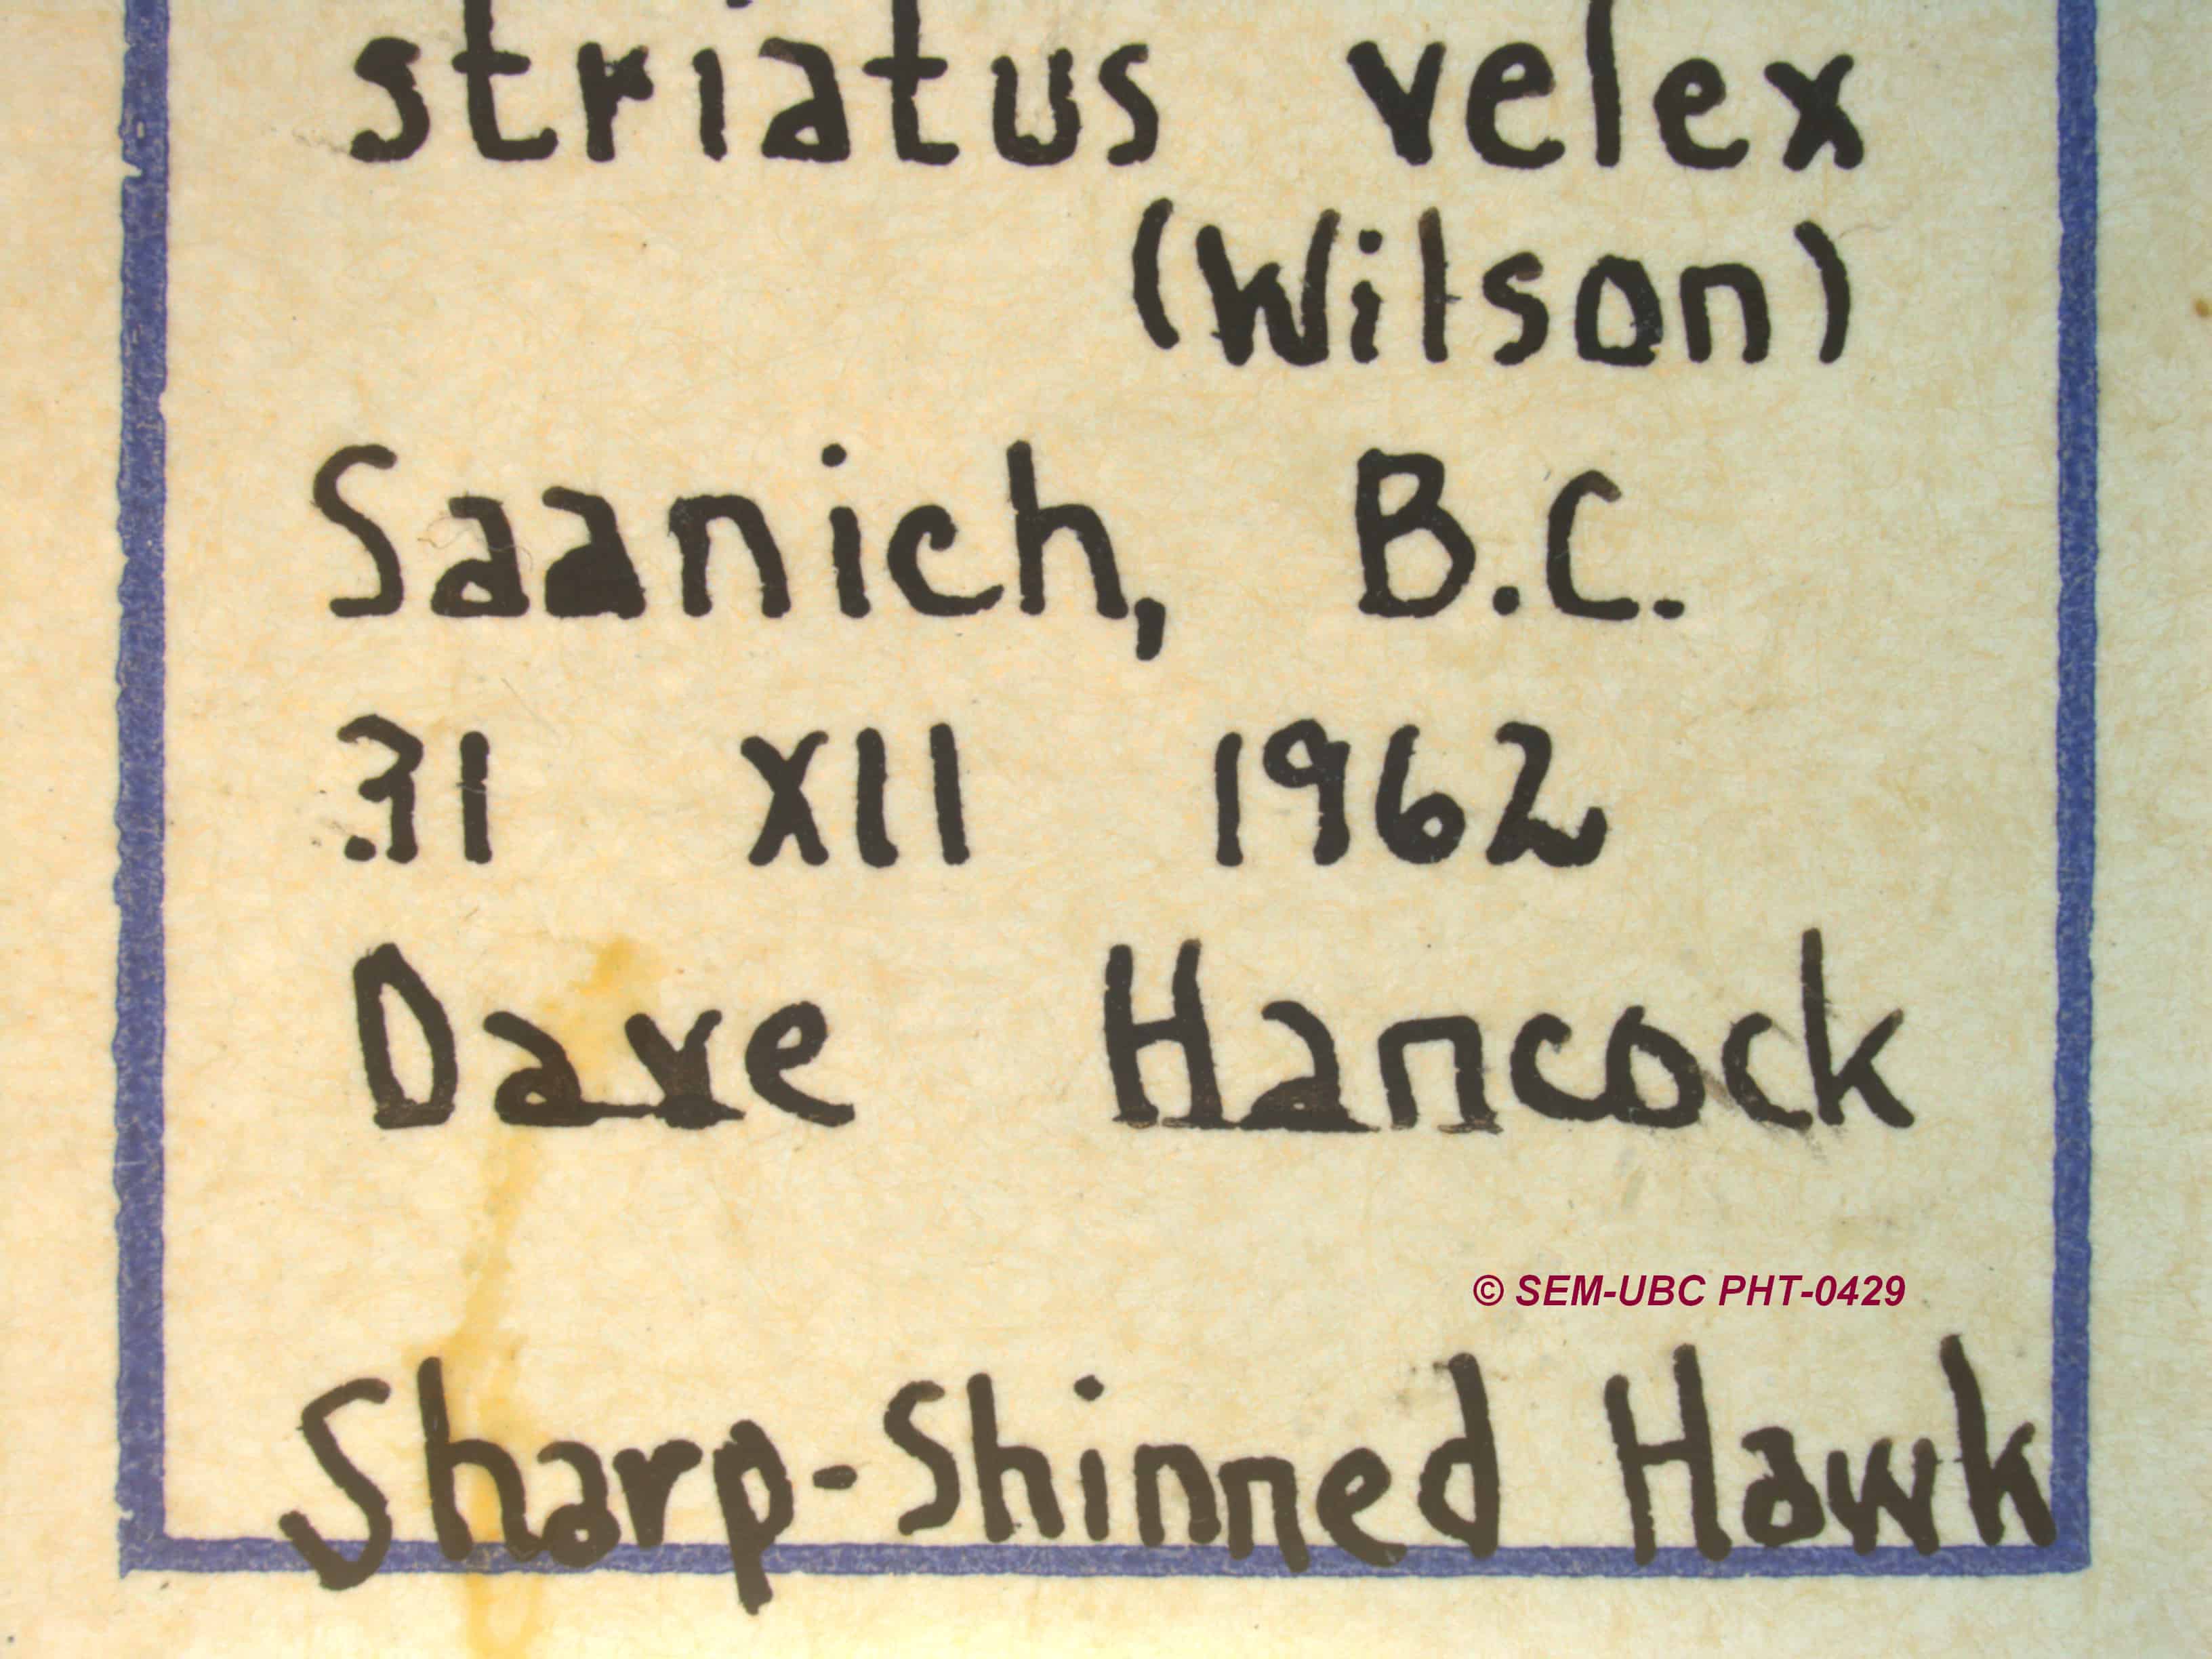 striatus velex
(Wilson)
Saanich, B.C.
31 XII 1962
Dave Hancock
© SEM-UBC PHT-0429
Sharp-Shinned Hawk